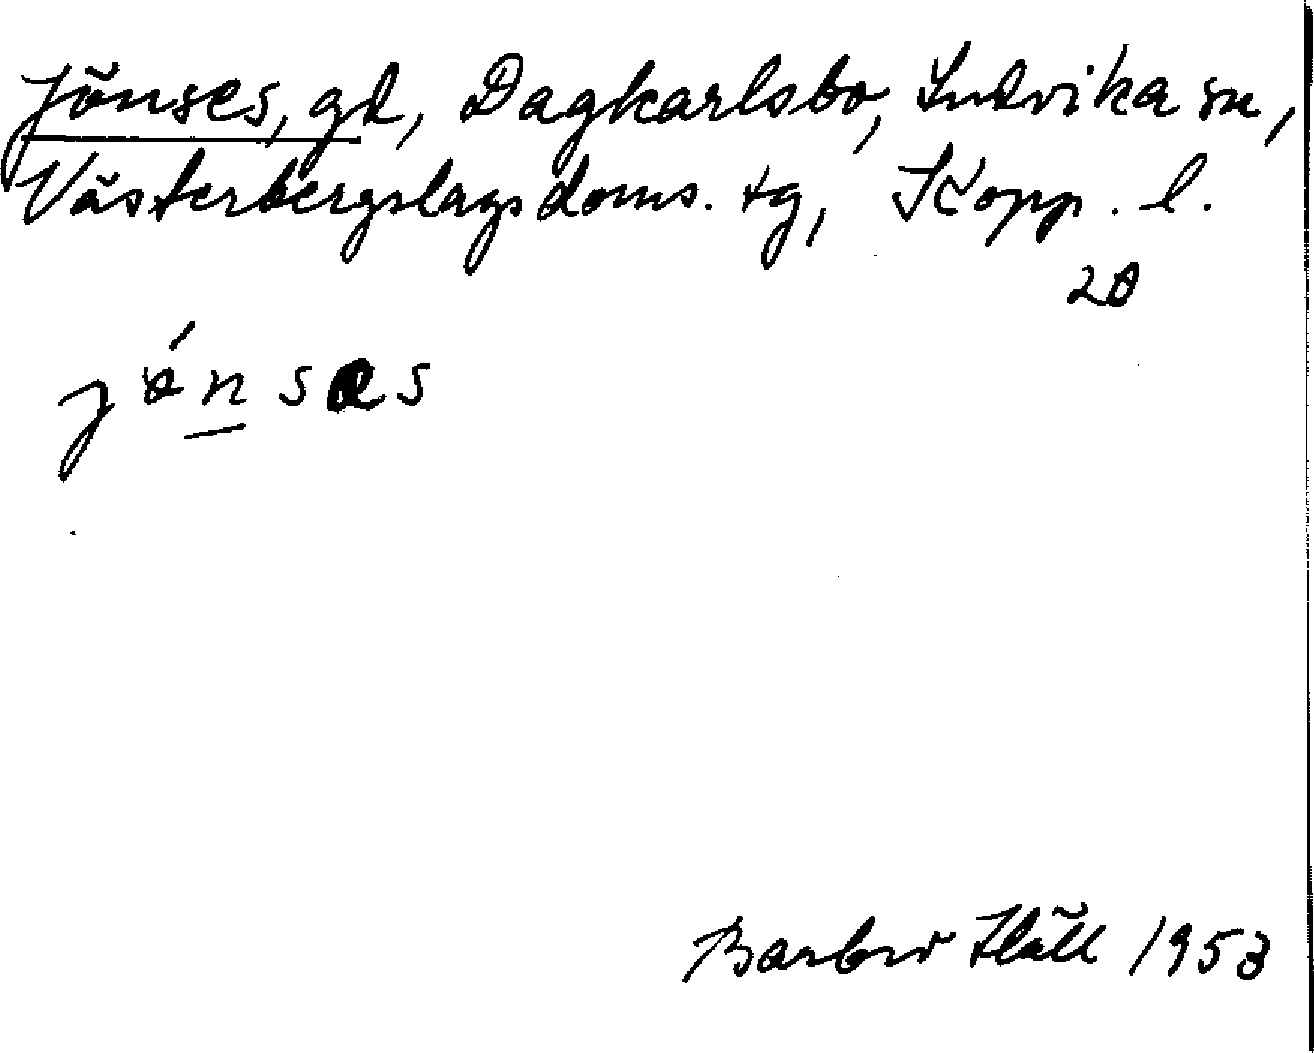 Jönses, gd, Dagkarlsbo, Ludvika sn,
Västerbergslags doms. tg, Kopp. l.
20
jönses
Barbro Häll 1953